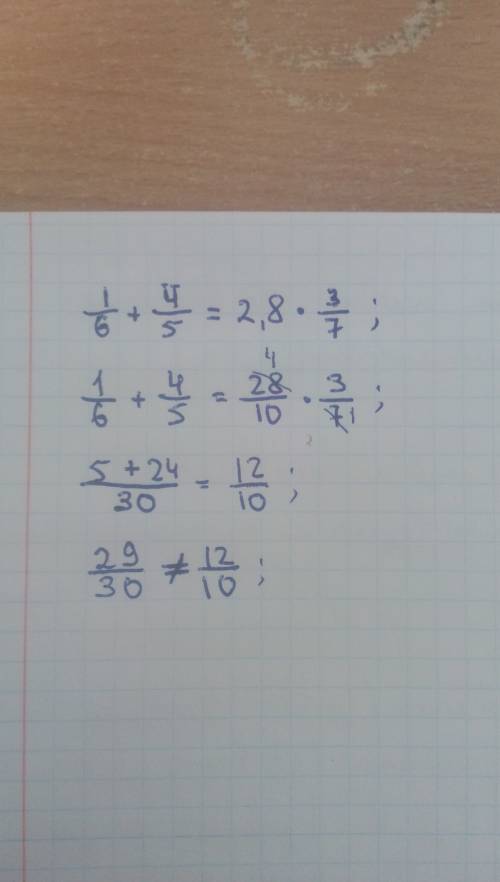 1/6 + 4/5 = 2,8 · 3/7 ;
1/6 + 4/5 = 28/10 · 3/7 ; 4 1
5 + 24/30 = 12/10 ;
29/30 ≠ 12/10 ;